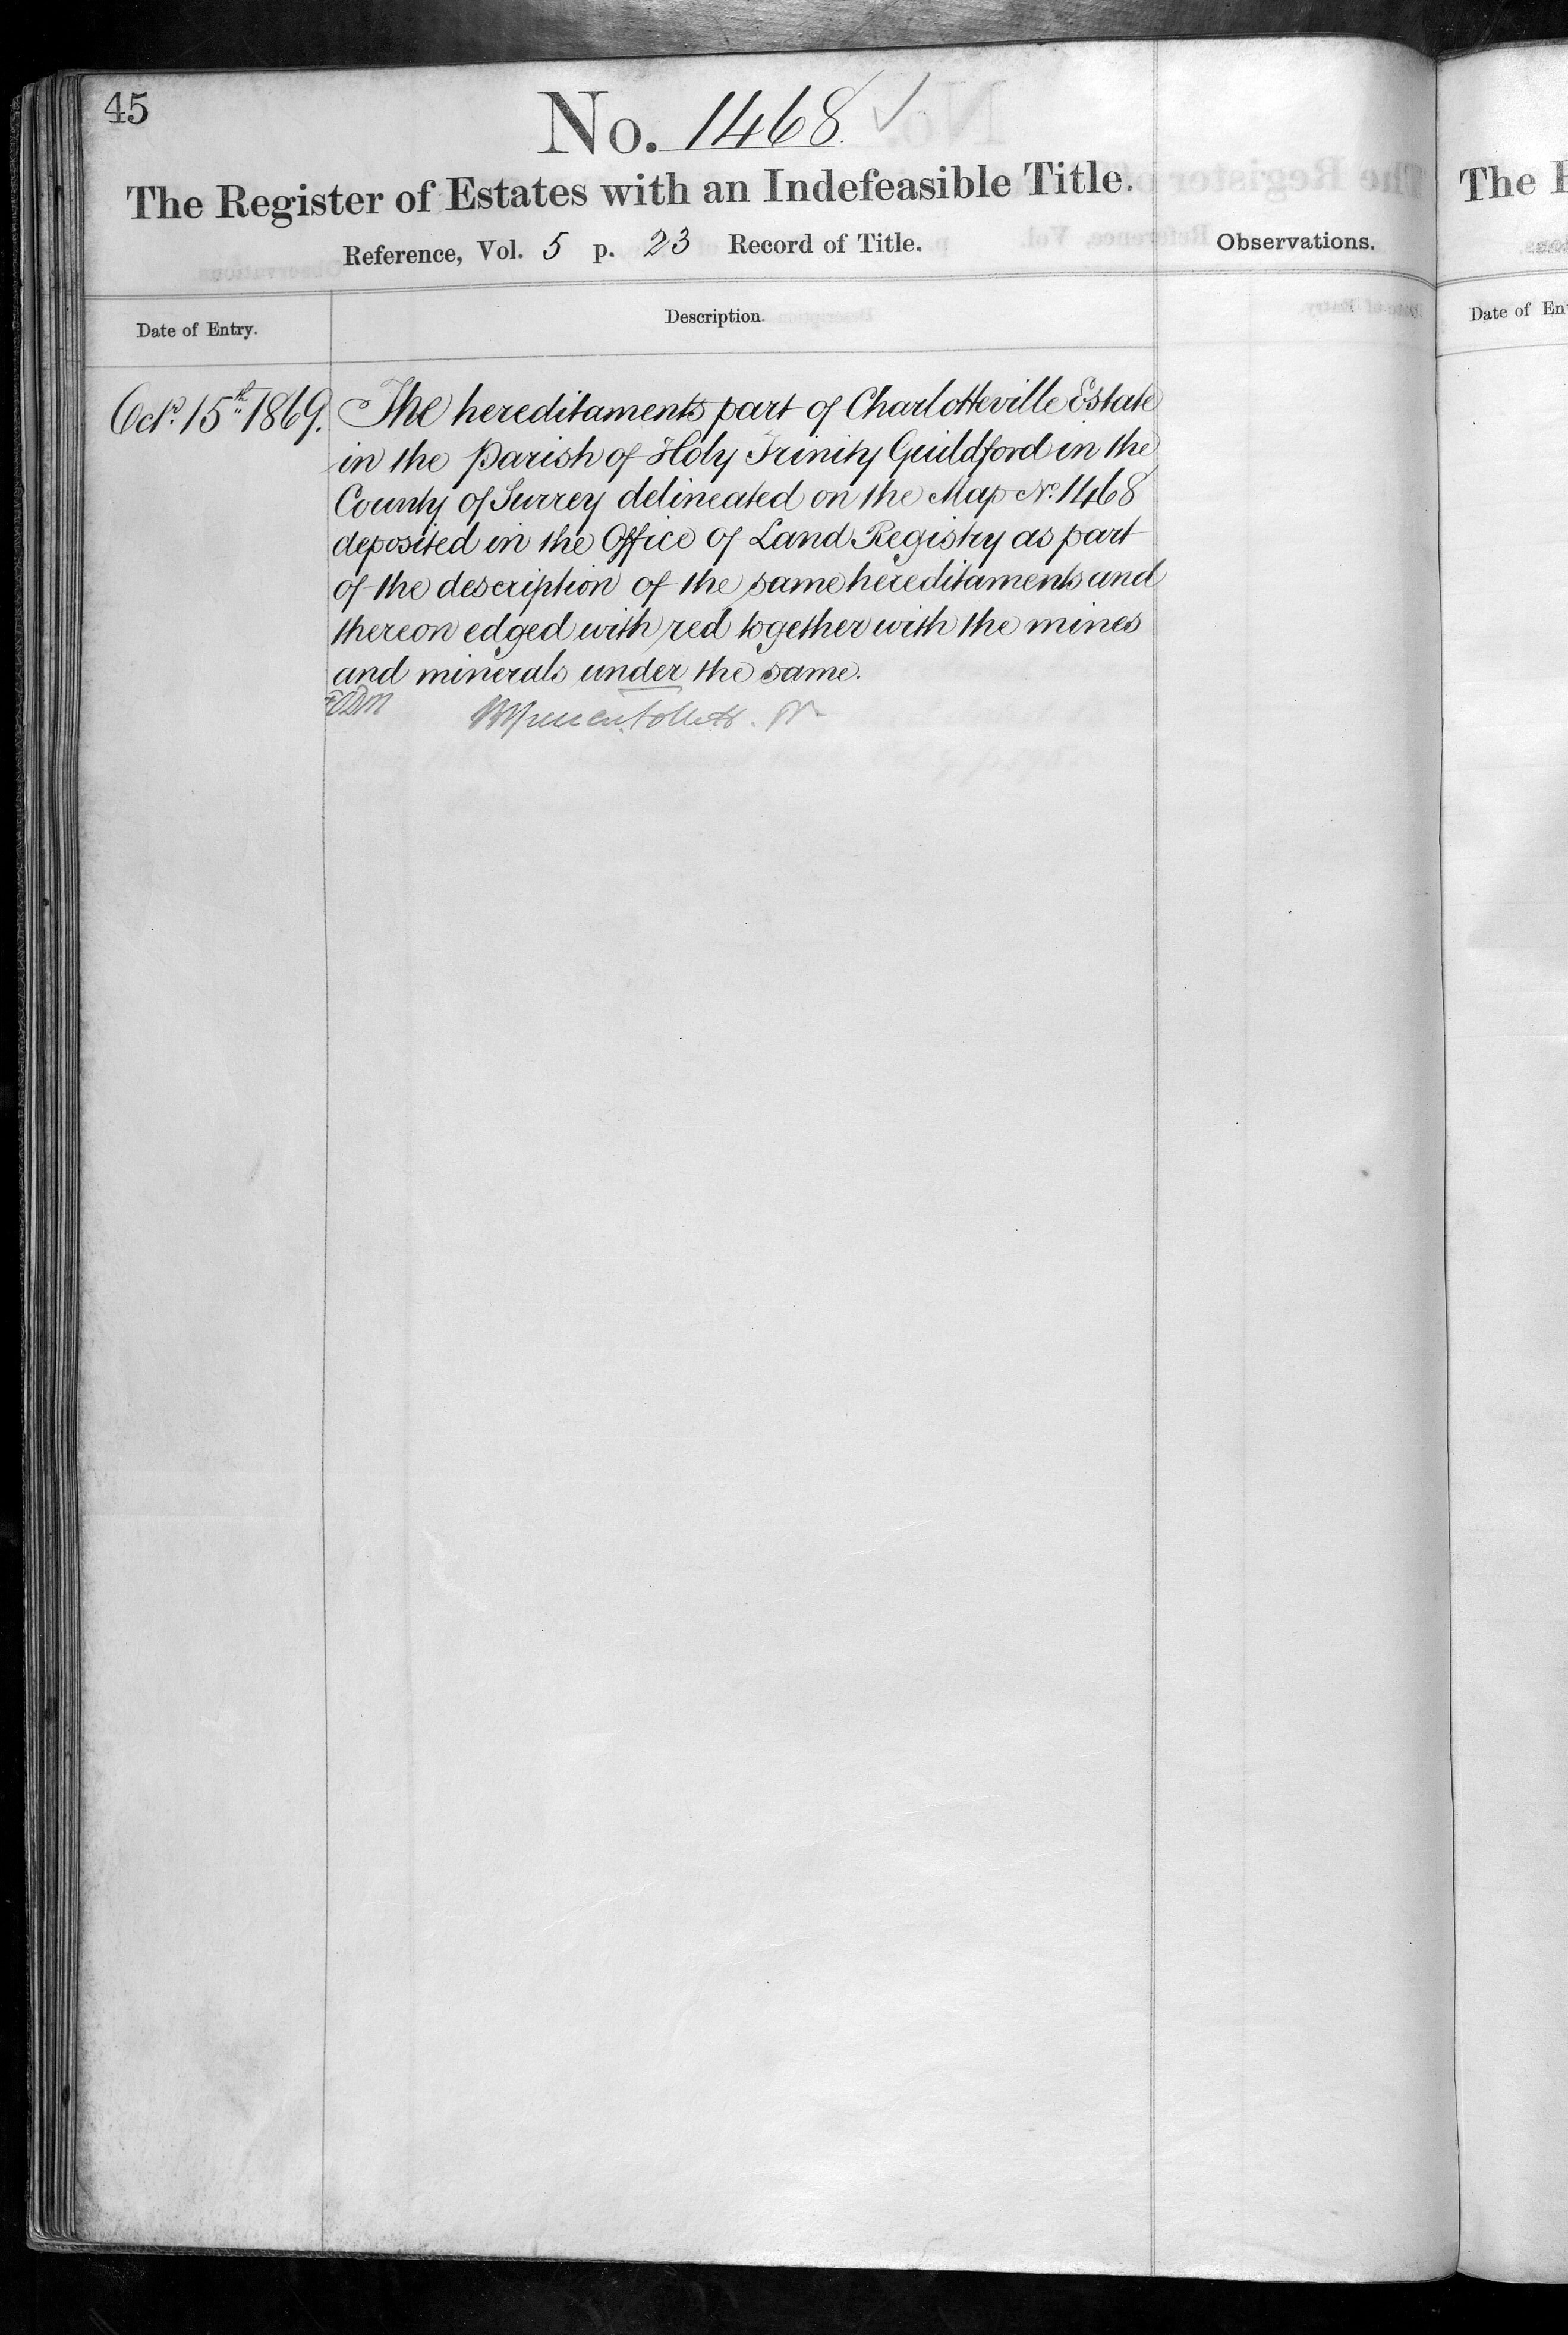 45
No. 1468.
The Register of Estates with an Indefeasible Title.
Reference, Vol. 5 p. 23 Record of Title.
Observations.
Date of Entry.
Description.
Octr. 15th 1869.
The hereditaments part of Charlotteville Estate
in the Parish of Holy Trinity Guildford in the
County of Surrey delineated on the Map No. 1468
deposited in the Office of Land Registry as part
of the description of the same hereditaments and
thereon edged with red together with the mines
and minerals under the same.
The
Date of En